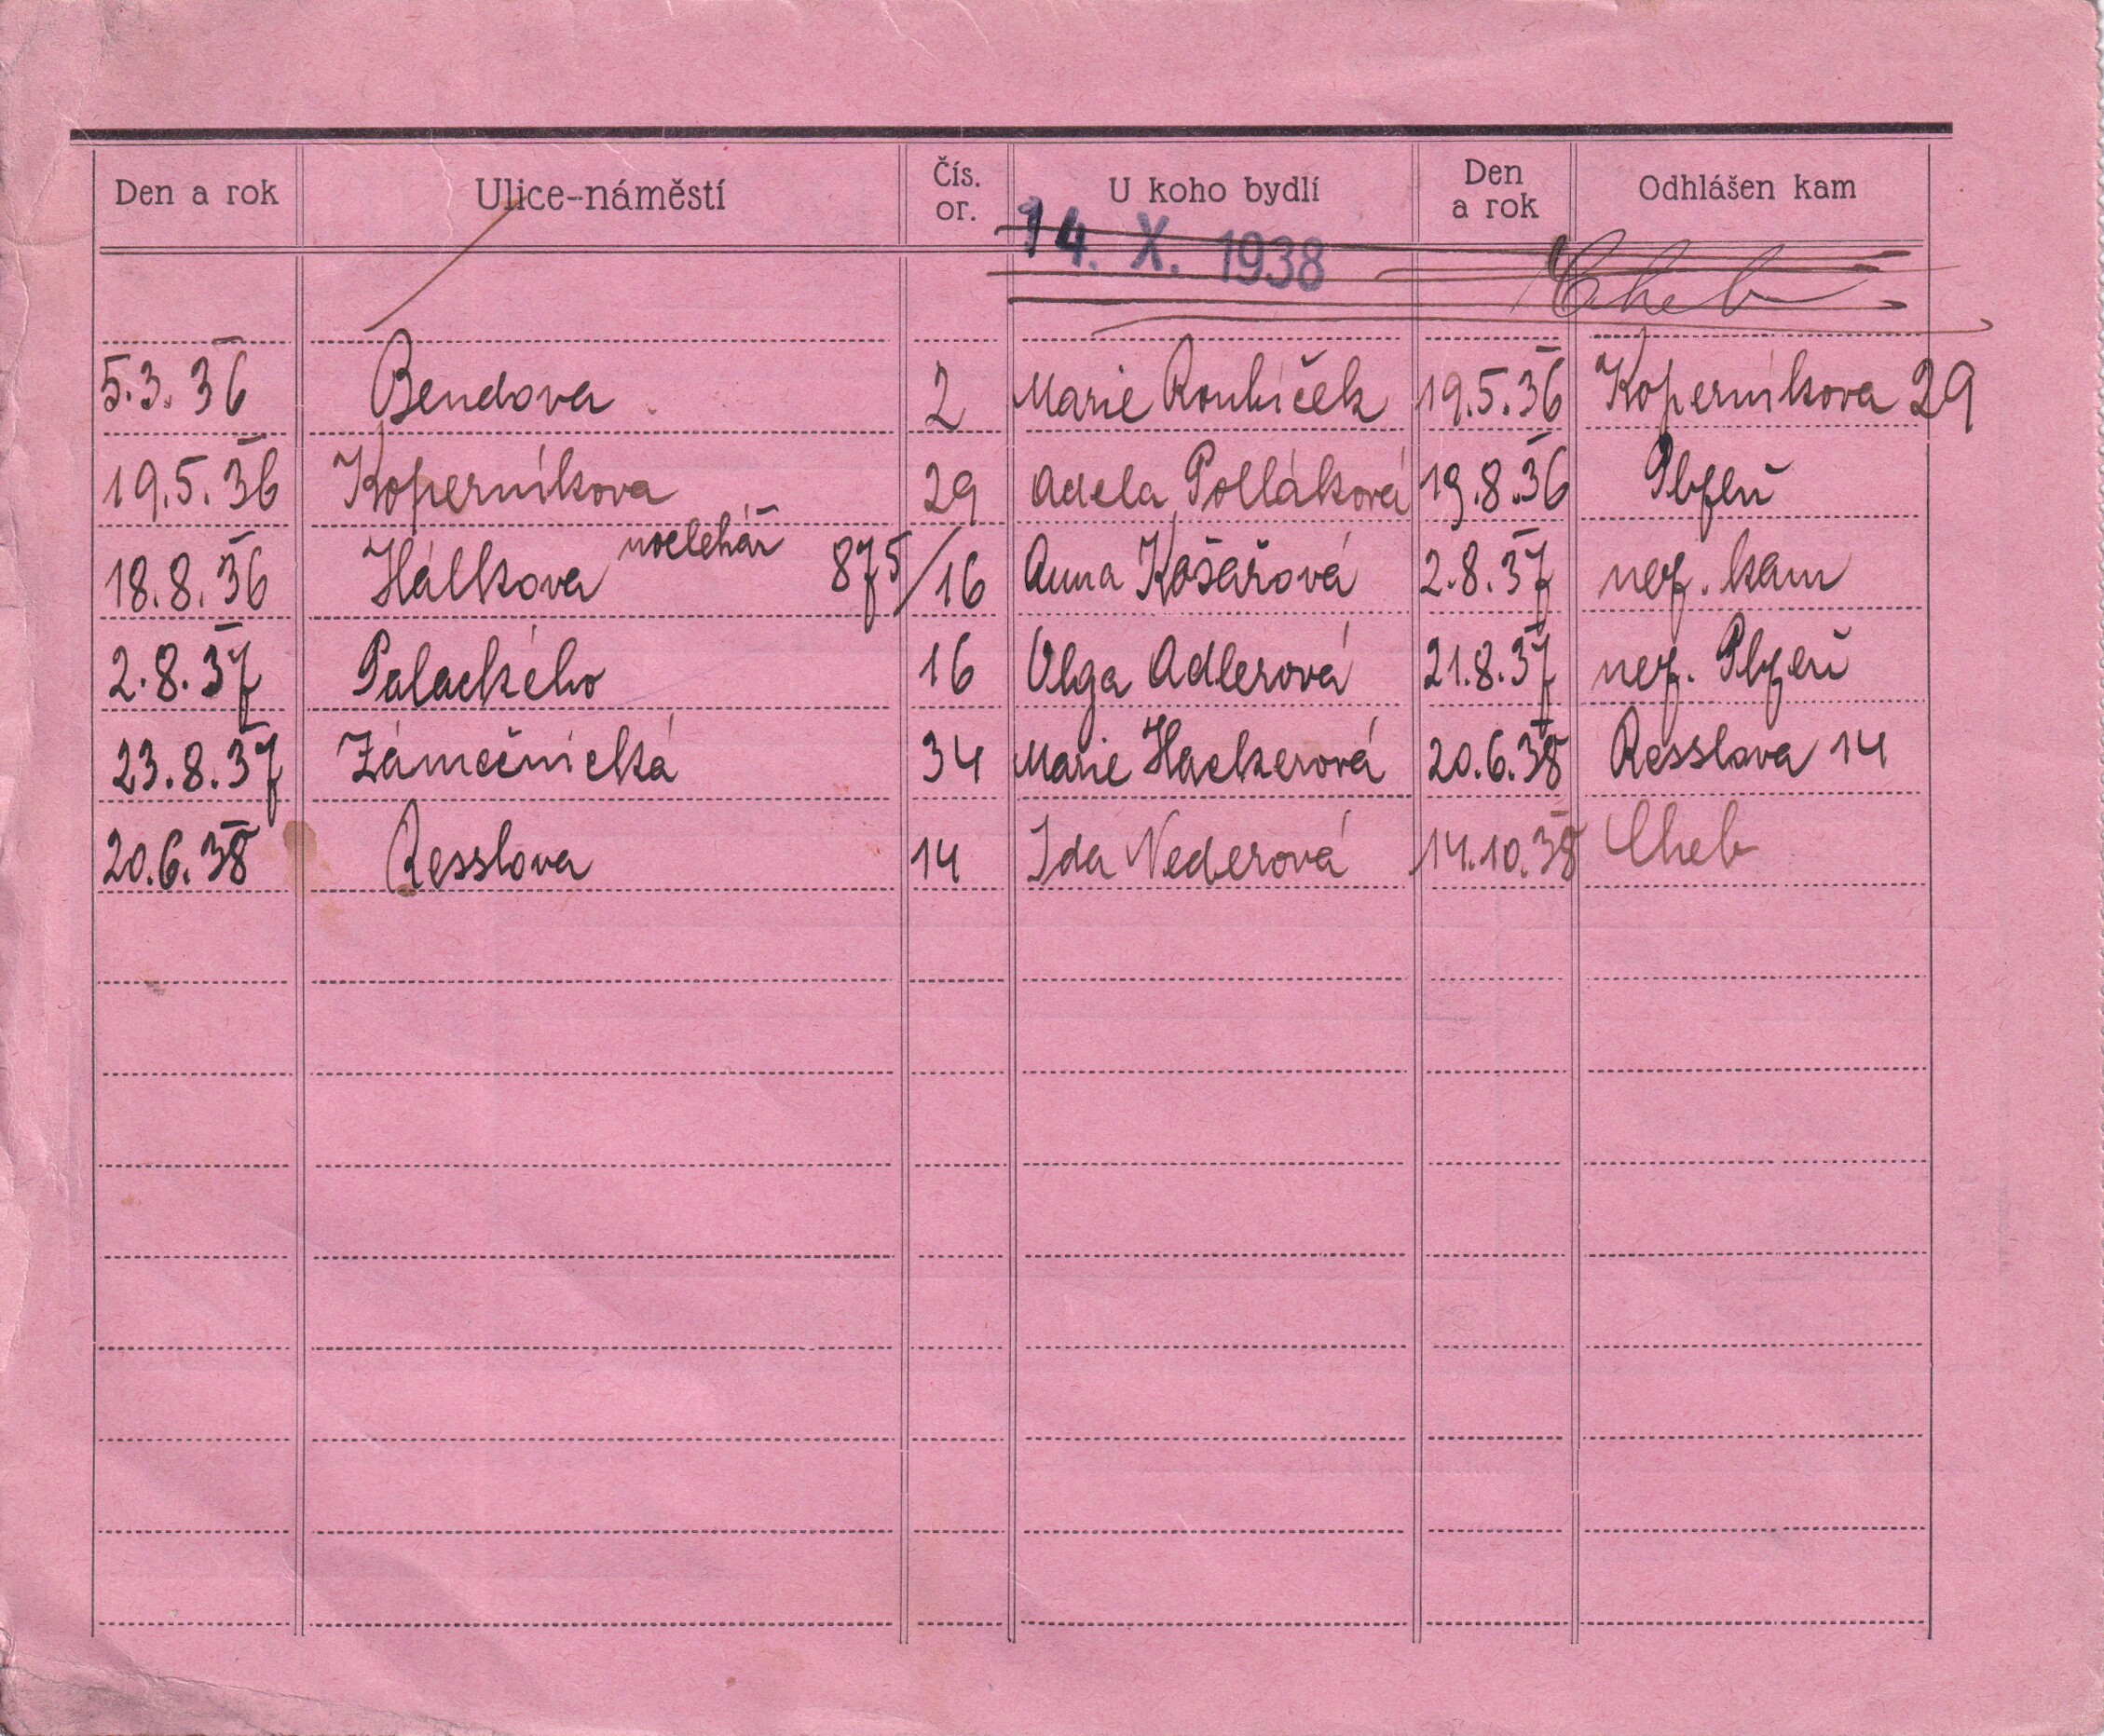 Den a rok Ulice-náměstí Čís. or. U koho bydlí Den a rok Odhlášen kam
14. X. 1938 Cheb
5.3.36 Bendova 2 Marie Roubíček 19.5.36 Koperníkova 29
19.5.36 Koperníkova 29 Adela Polláková 19.8.36 Plzeň
18.8.36 Hálkova noclehář 875/16 Anna Košařová 2.8.37 nez. kam
2.8.37 Palackého 16 Olga Adlerová 21.8.37 nez. Plzeň
23.8.37 Zámečnická 34 Marie Hackerová 20.6.38 Resslova 14
20.6.38 Resslova 14 Ida Nederová 14.10.38 Cheb